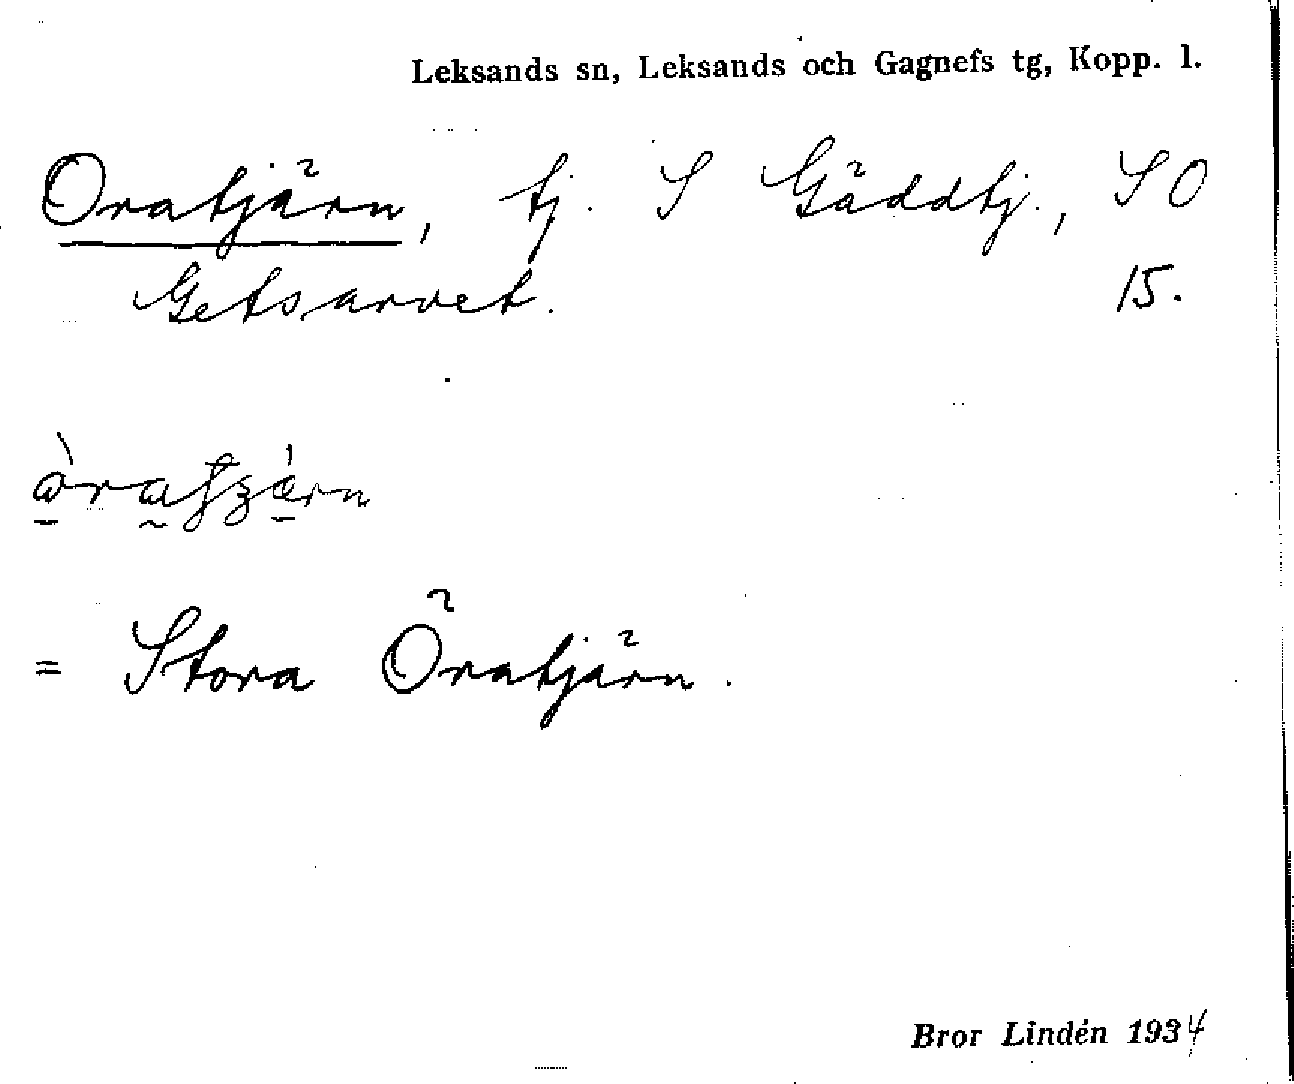 Leksands sn, Leksands och Gagnefs tg, Kopp. l.
Oratjärn, tj. S Gäddtj., SO
Getsarvet. 15.
= Stora Öratjärn.
Bror Lindén 1934